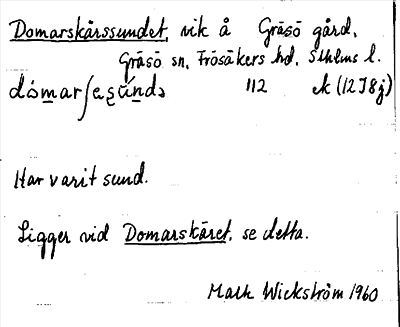 Domarskärssundet, vik å Gräsö gård,
Gräsö sn, Frösåkers hd, Sthlms l.
dómarʃesúndə 112 ek (12I8j)
Har varit sund.
Ligger vid Domarskäret, se detta.
Math Wickström 1960